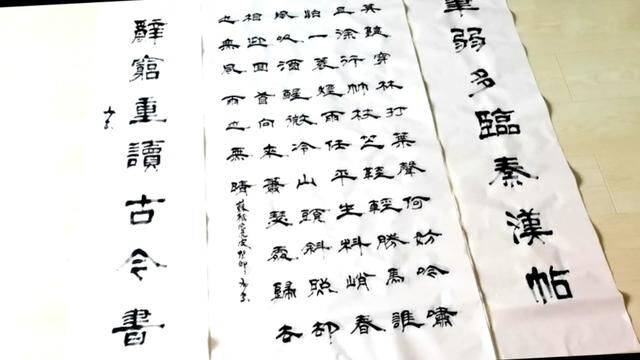 筆弱多臨秦漢帖
莫聽穿林打葉聲何妨吟嘯
且徐行竹杖芒鞋輕勝馬誰
怕一蓑煙雨任平生料峭春
風吹酒醒微冷山頭斜照卻
相迎回首向來蕭瑟處歸去
也無風雨也無晴
蘇軾定風波
辭窮重讀古今書